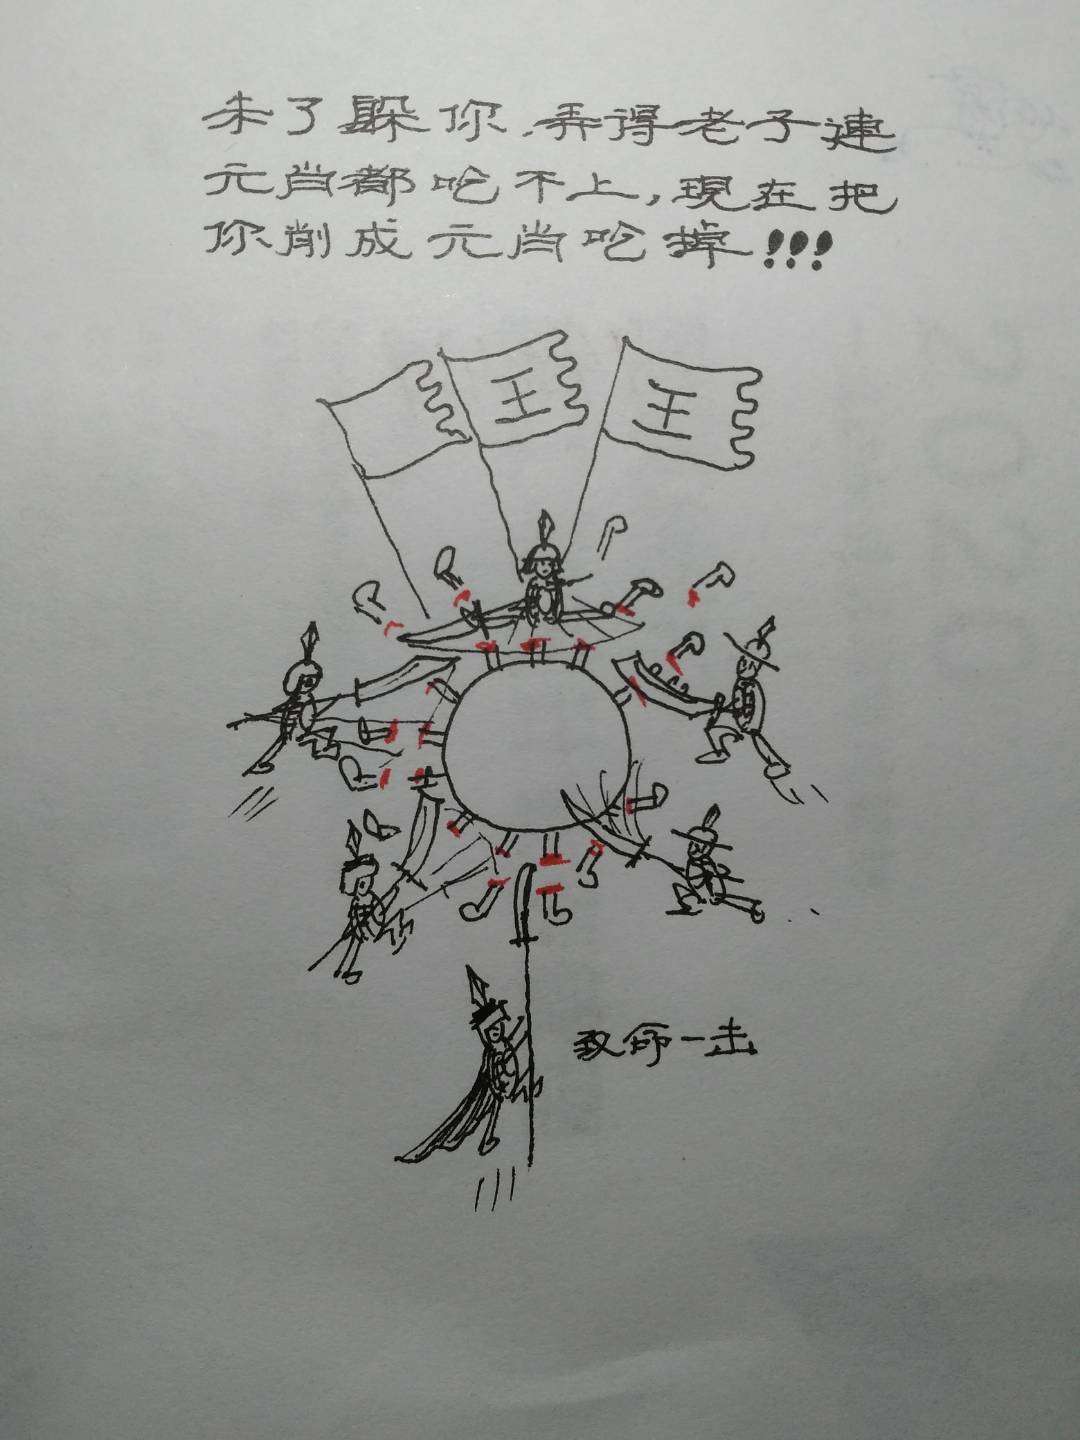 未了躲你,弄得老子連
元肖都吃不上,現在把
你削成元肖吃掉!!!
王
王
致命一击